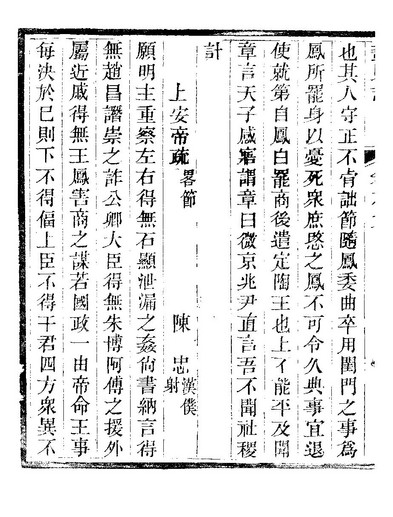 也其人守正不肯詘節隨鳳委曲卒用閨門之事爲
鳳所罷身以憂死衆庶愍之鳳不可令久典事宜退
使就第自鳳白罷商後遣定陶王也上不能平及聞
章言天子感寤謂章曰微京兆尹直言吾不聞社稷
計
上安帝疏畧節 陳忠漢僕射
願明主重察左右得無石顯泄漏之姦尙書納言得
無趙昌譖崇之詐公卿大臣得無朱博阿傅之援外
屬近戚得無王鳳害商之謀若國政一由帝命王事
每決於已則下不得偪上臣不得干君四方衆異不